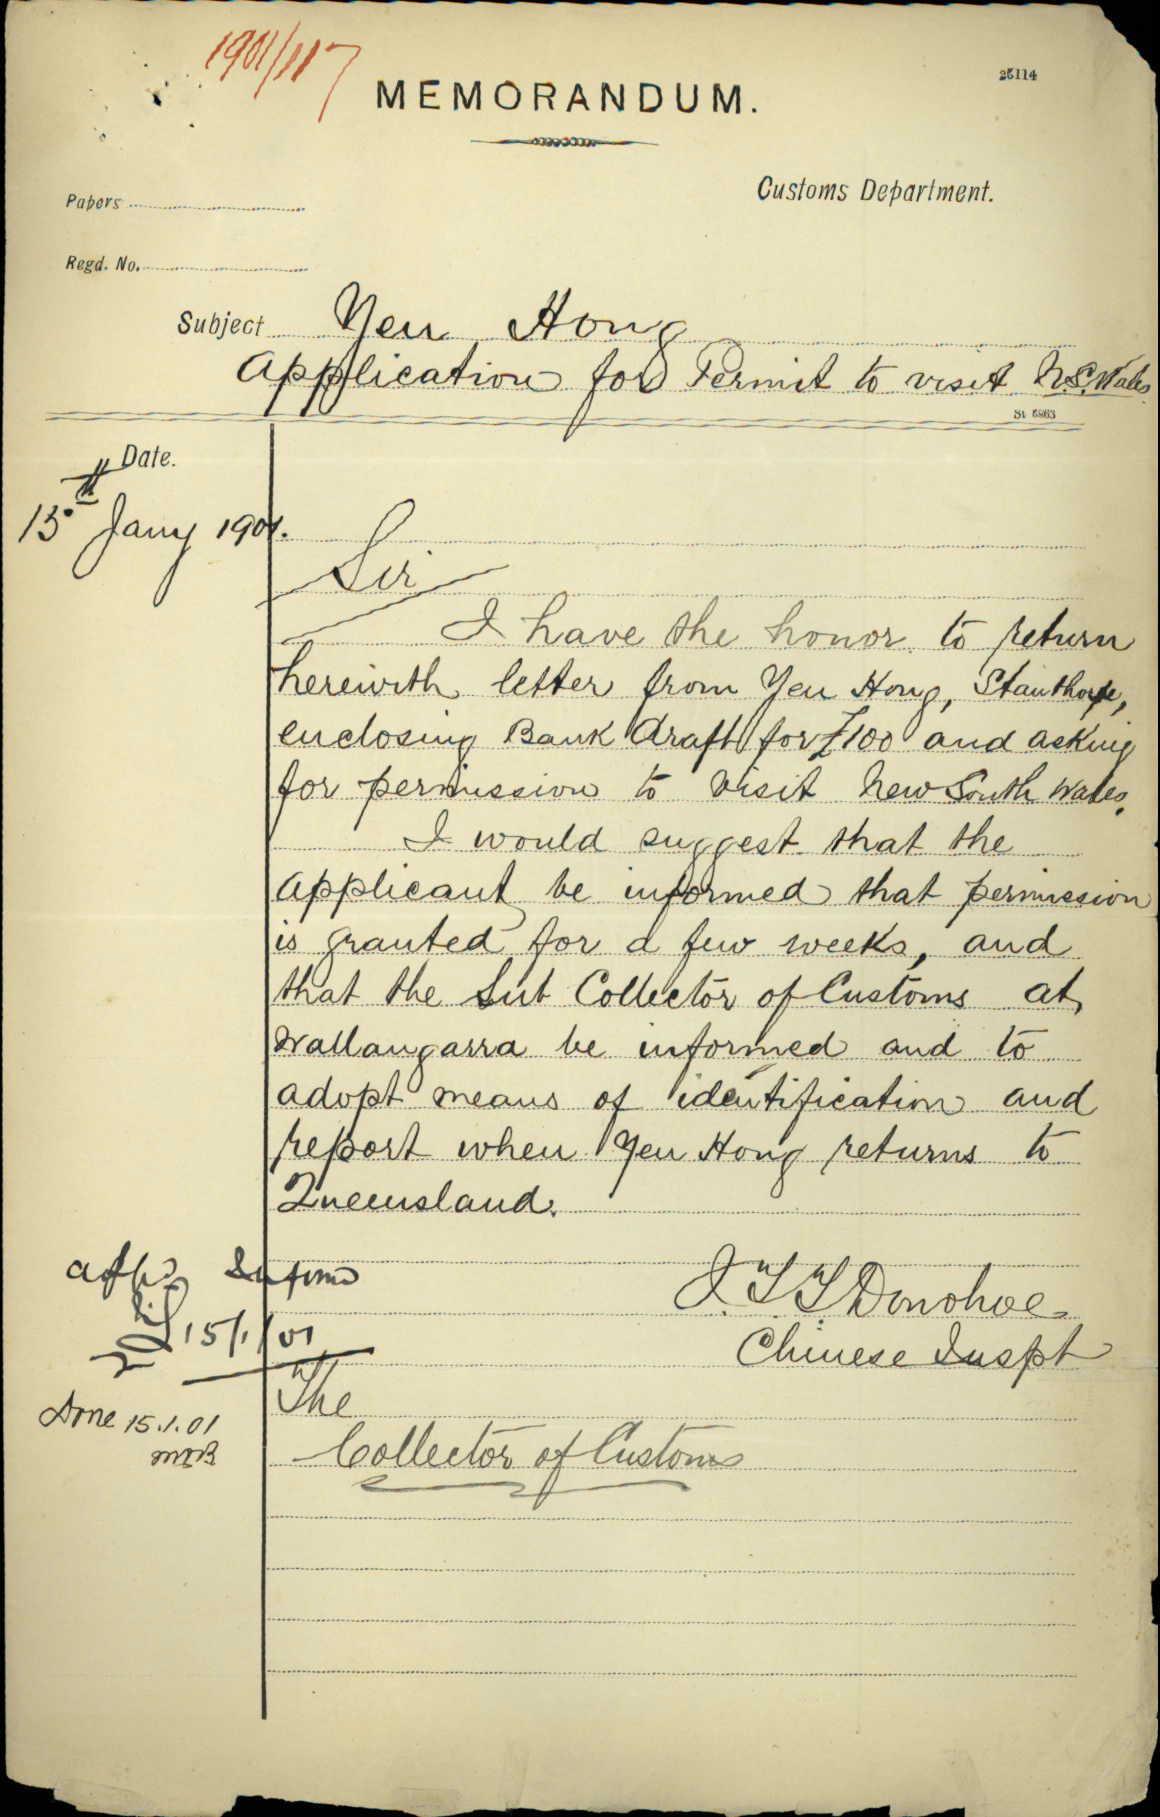 1901/117
25114
MEMORANDUM.
Customs Department.
Papers
Regd. No.
Subject Yen Hong
Application for Permit to visit N.S. Wales
St 5863
Date.
15th Jany 1901.
Sir
I have the honor to return
herewith letter from Yen Hong, Stanthorpe,
enclosing Bank draft for £100 and asking
for permission to visit New South Wales.
I would suggest that the
applicant be informed that permission
is granted for a few weeks, and
that the Sub Collector of Customs at
Wallangarra be informed and to
adopt means of identification and
report when Yen Hong returns to
Queensland.
Inform
15/1/01
J. T. T. Donohoe
Chinese Inspt
The
Collector of Customs
Done 15.1.01